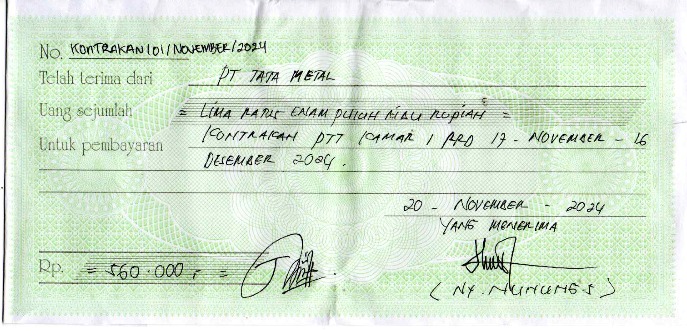 No. KONTRAKAN/01/NOVEMBER/2024
Telah terima dari PT TATA METAL
Uang sejumlah = LIMA RATUS ENAM PULUH RIBU RUPIAH =
Untuk pembayaran KONTRAKAN PTT KAMAR 1 PRD 17 - NOVEMBER - 16
DESEMBER 2024.
20 - NOVEMBER - 2024
YANG MENERIMA
Rp. = 560.000,- =
( NY. NUNUNG S )